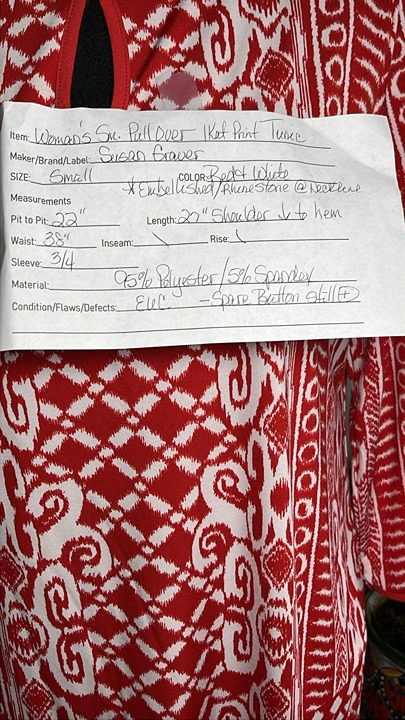 Item: Woman's Sm. Pull Over IKat Print Tunic
Maker/Brand/Label: Susan Graver
SIZE: Small COLOR: Red & White
* Embellished/Rhinestone @ Neckline
Measurements
Pit to Pit: 22" Length: 27" Shoulder ↓ to hem
Waist: 38" Inseam: \ Rise: \
Sleeve: 3/4
Material: 95% Polyester/5% Spandex
Condition/Flaws/Defects: EUC. - Spare Button still +